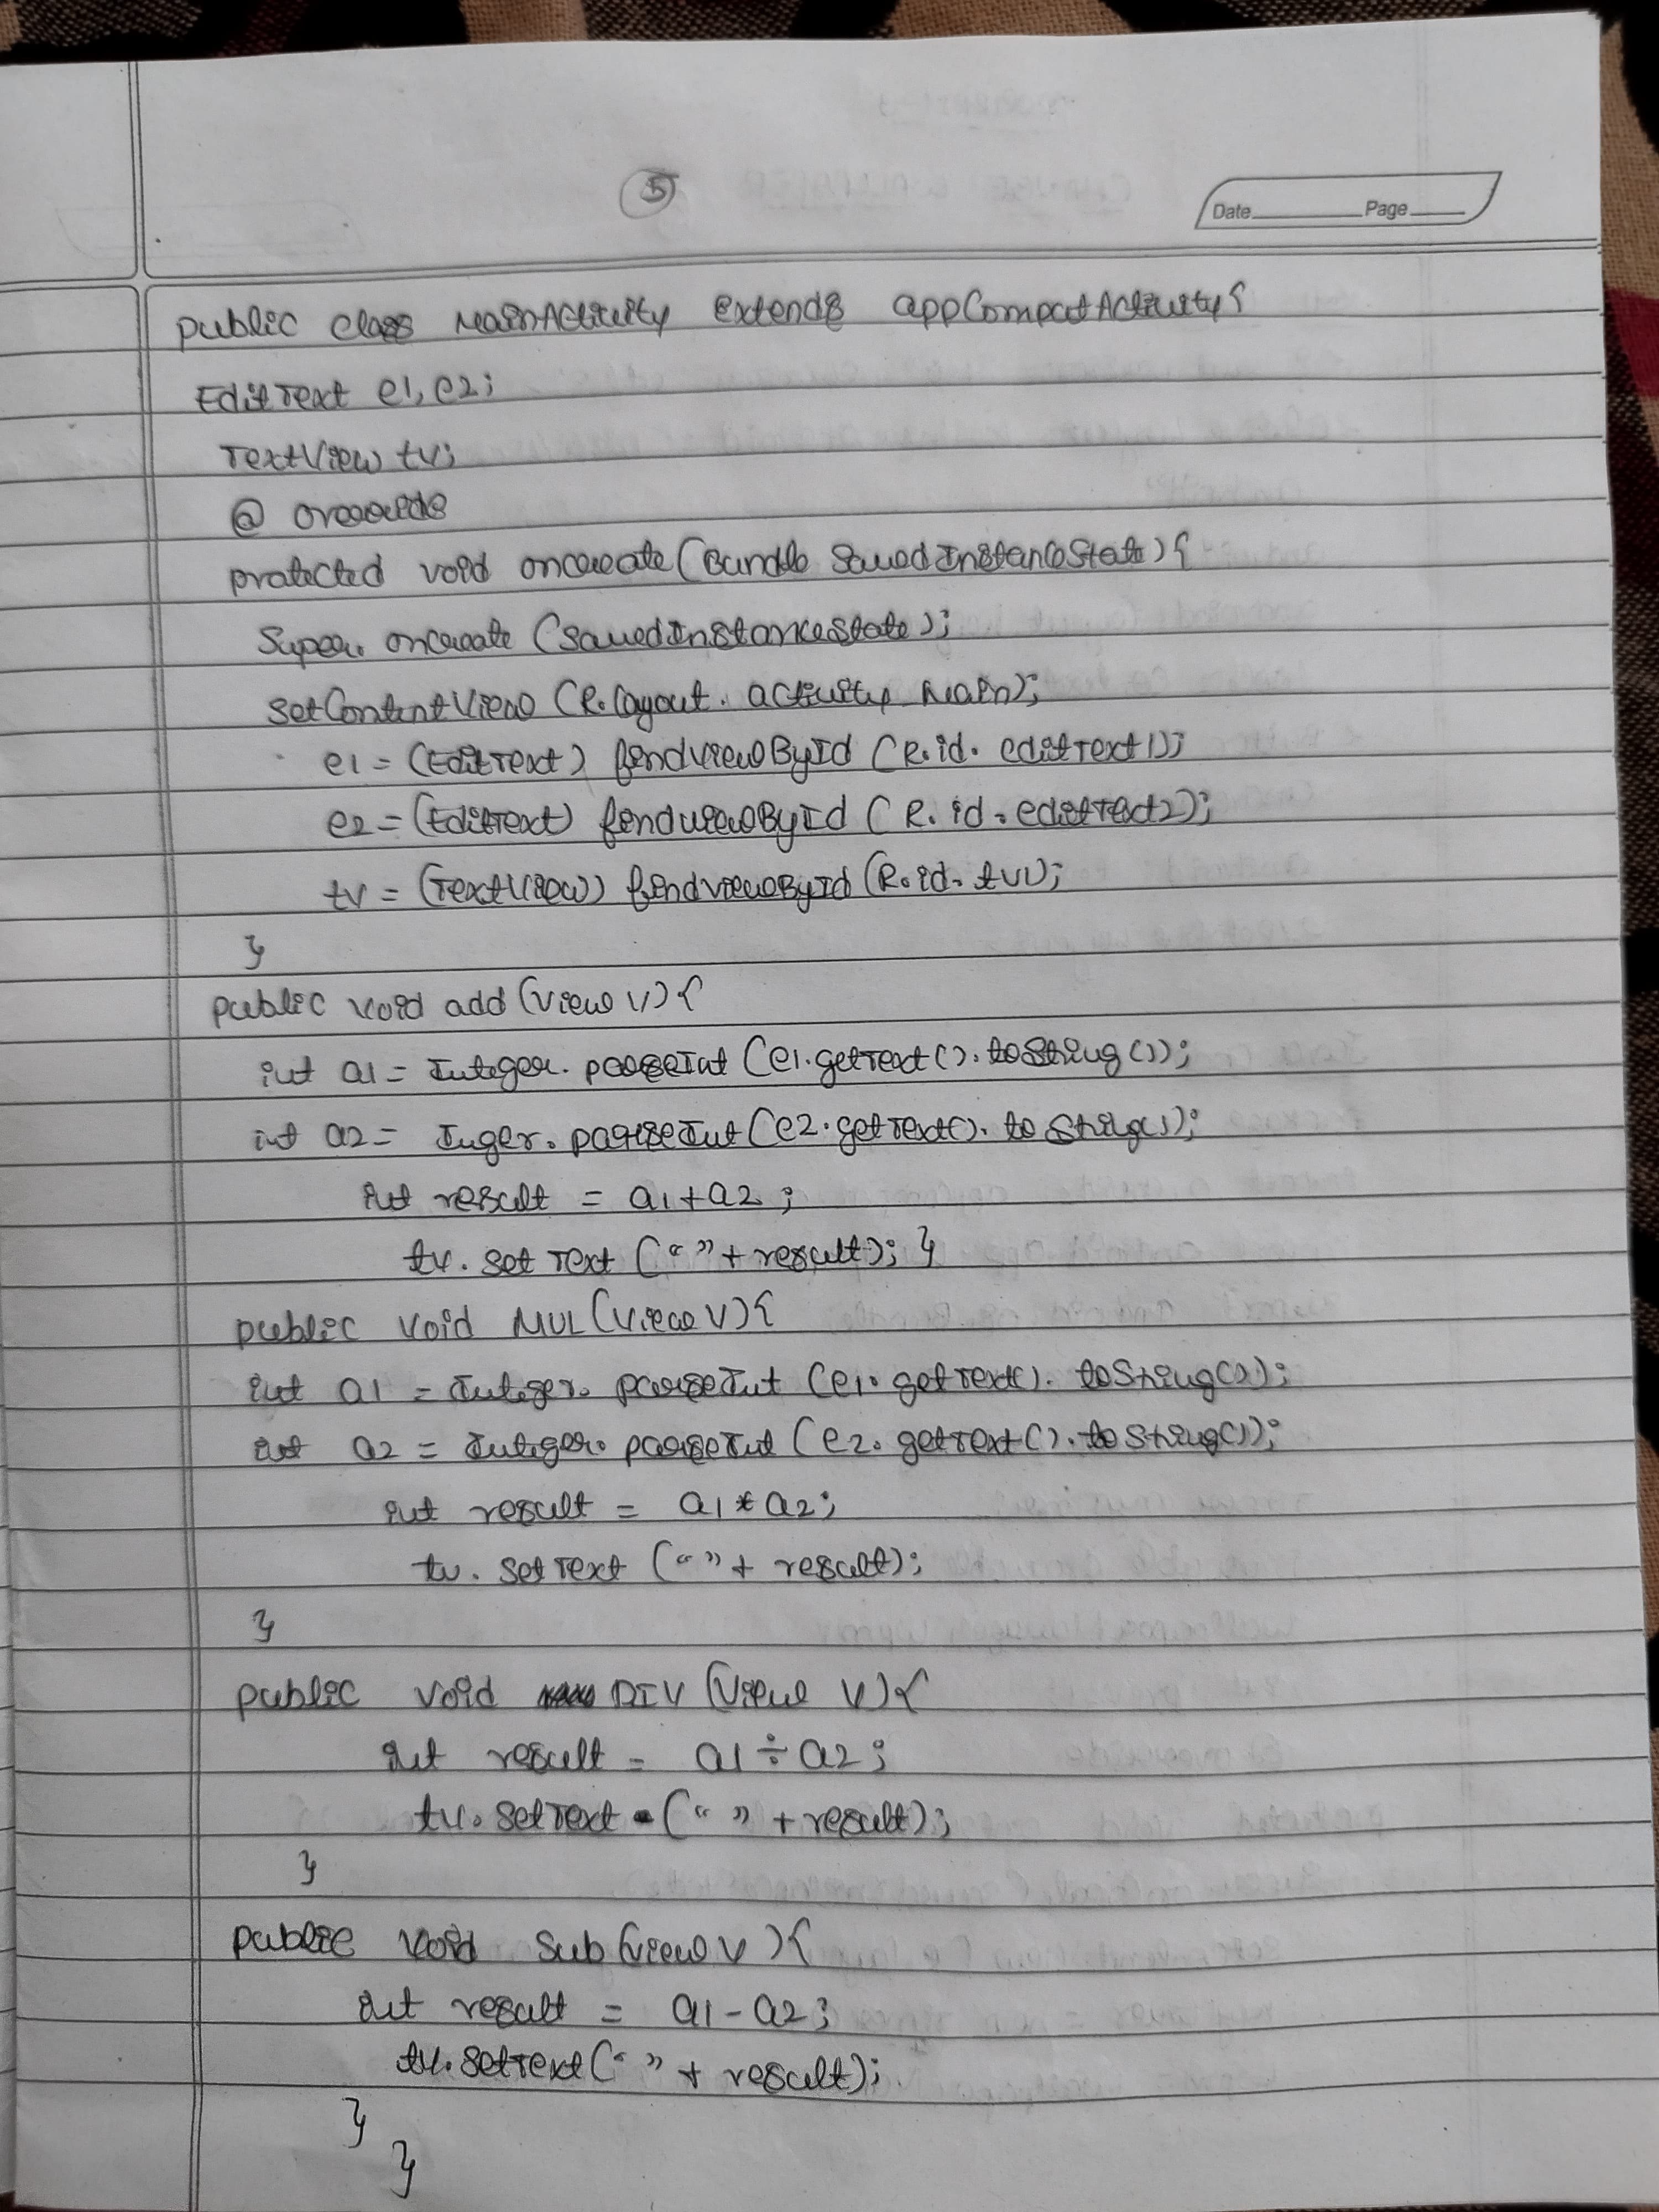 5
Date Page
public class MainActivity extends appCompatActivity{
EditText e1, e2;
TextView tv;
@ override
protected void oncreate (Bundle SavedInstanceState) {
Super. oncreate (SavedInstanceState);
setContentView (R.layout. activity_Main);
e1 = (EditText) findviewById (R.id. editText1);
e2 = (EditText) findviewById (R. id. editText2);
tv = (TextView) findviewById (R.id. tv1);
}
public void add (View v) {
int a1 = Integer. parseInt (e1.getText(). toString ());
int a2 = Inger. parseInt (e2.getText(). to String());
int result = a1+a2 ;
tv. set Text (" " + result); }
public void MUL (View V) {
int a1 = Integer. parseInt (e1. getText(). toString());
int a2 = Integer. parseInt (e2. getText(). to String());
int result = a1 * a2;
tv. set Text (" " + result);
}
public void DIV (View V) {
int result = a1 ÷ a2 ;
tv. setText (" " + result);
}
public void Sub (View v ) {
int result = a1 - a2 ;
tv. setText (" " + result);
}
}